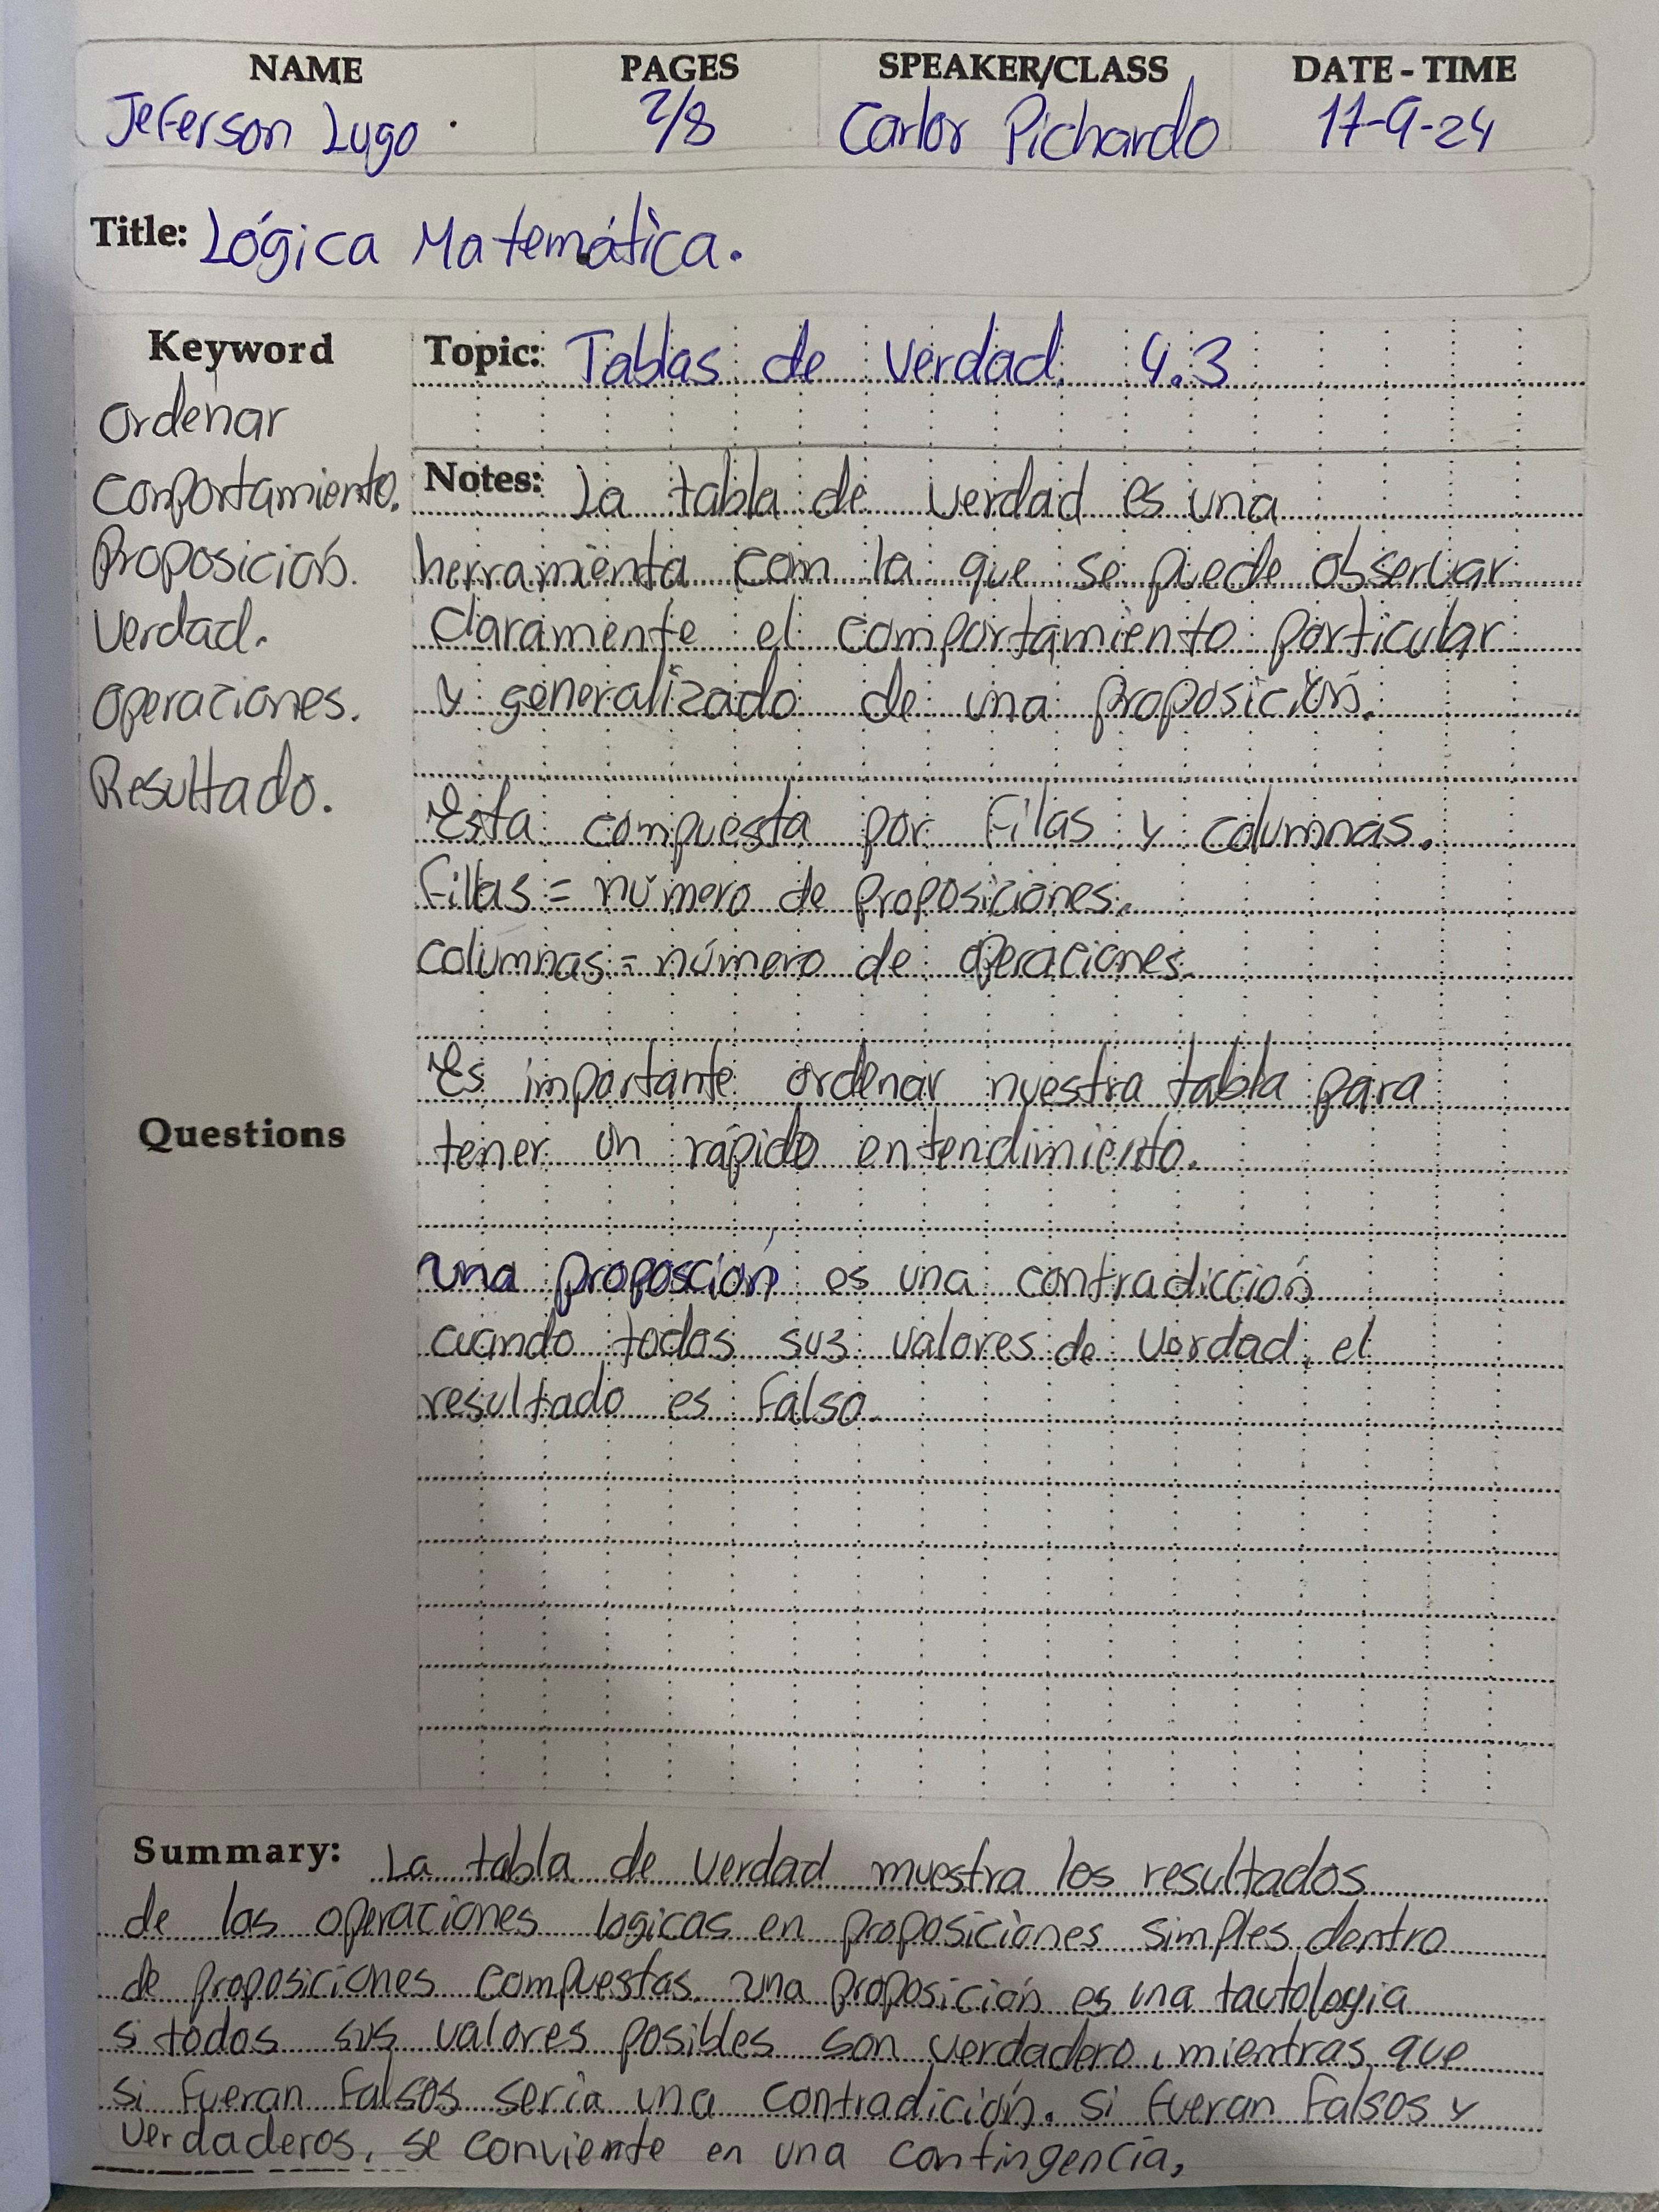 NAME PAGES SPEAKER/CLASS DATE - TIME
Jeferson Lugo. 2/8 Carlor Pichardo 17-9-24
Title: Lógica Matemática.
Keyword
Ordenar
Comportamiento.
Proposición.
Verdad.
Operaciones.
Resultado.
Questions
Topic: Tablas de Verdad. 4.3
Notes: La tabla de verdad es una
herramienta com la que se puede observar
Claramente el comportamiento particular
y generalizado de una proposición.
Esta compuesta por filas y columnas.
fillas = número de proposiciones.
columnas = número de operaciones.
Es importante ordenar nuestra tabla para
tener un rápido entendimiento.
una proposción es una contradicción
cuando todos sus valores de verdad, el
resultado es falso.
Summary: La tabla de verdad muestra los resultados
de las operaciones logicas en proposiciones simples dentro
de proposiciones compuestas. una proposición es una tautologia
si todos sus valores posibles son verdadero, mientras que
si fueran falsos seria una contradición. si fueran falsos y
verdaderos, se conviente en una contingencia,